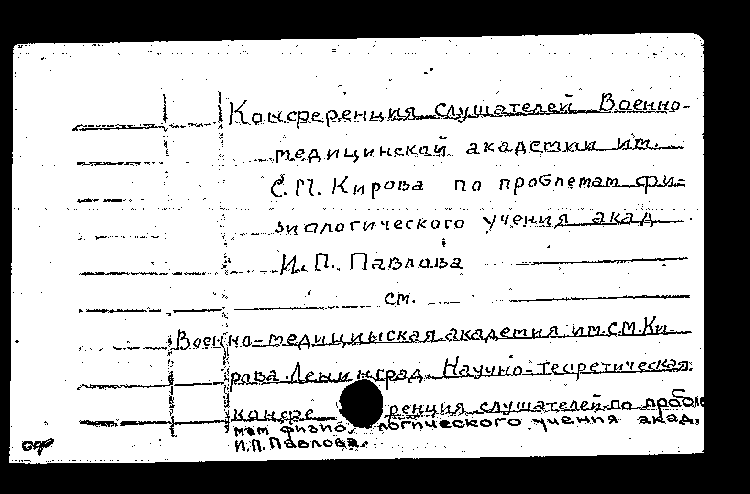 Конференция слушателей Военно-
медицинской академии им.
С.М. Кирова по проблемам фи-
зиологического учения акад.
И.П. Павлова
см.
Военно-медицинская академия им.С.М.Ки-
рова. Ленинград. Научно-теоретическая
конференция слушателей по пробле
мам физиологического учения акад.
И.П.Павлова.